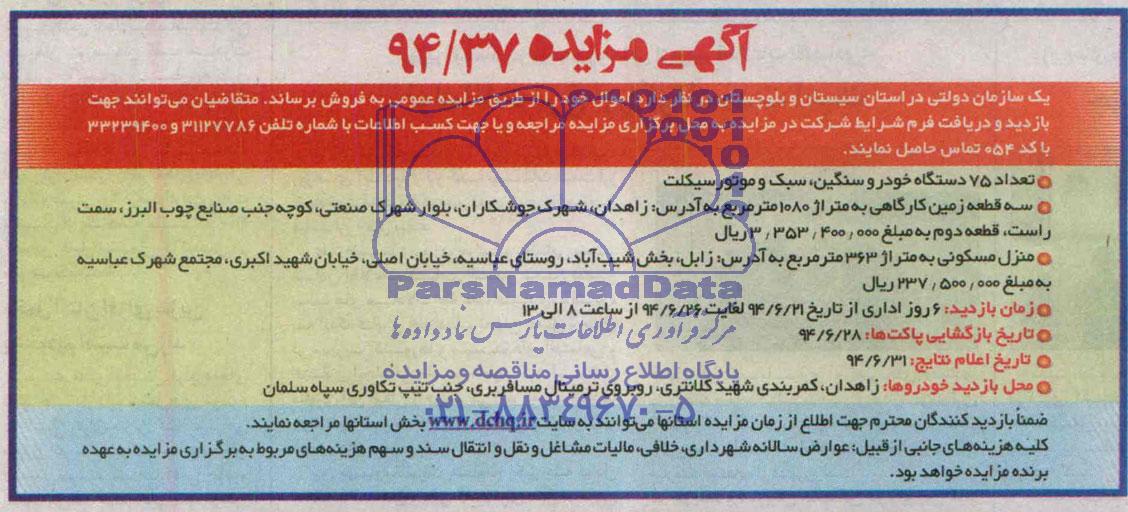 آگهی مزایده ۹۴/۳۷
یک سازمان دولتی در استان سیستان و بلوچستان در نظر دارد اموال خود را از طریق مزایده عمومی به فروش برساند. متقاضیان می‌توانند جهت
بازدید و دریافت فرم شرایط شرکت در مزایده به محل برگزاری مزایده مراجعه و یا جهت کسب اطلاعات با شماره تلفن ۳۱۱۲۷۷۸۶ و ۳۳۲۳۹۴۰۰
با کد ۰۵۴ تماس حاصل نمایند.
تعداد ۷۵ دستگاه خودرو سنگین، سبک و موتورسیکلت
سه قطعه زمین کارگاهی به متراژ ۱۰۸۰ مترمربع به آدرس: زاهدان، شهرک جوشکاران، بلوار شهرک صنعتی، کوچه جنب صنایع چوب البرز، سمت
راست، قطعه دوم به مبلغ ۳٫۳۵۳٫۴۰۰٫۰۰۰ ریال
منزل مسکونی به متراژ ۳۶۳ مترمربع به آدرس: زابل، بخش شیب‌آباد، روستای عباسیه، خیابان اصلی، خیابان شهید اکبری، مجتمع شهرک عباسیه
به مبلغ ۲۳۷٫۵۰۰٫۰۰۰ ریال
ParsNamadData
زمان بازدید: ۶ روز اداری از تاریخ ۹۴/۶/۲۱ لغایت ۹۴/۶/۲۶ از ساعت ۸ الی ۱۳
مرکز فرآوری اطلاعات پارس نماد داده‌ها
تاریخ بازگشایی پاکت‌ها: ۹۴/۶/۲۸
تاریخ اعلام نتایج: ۹۴/۶/۳۱
پایگاه اطلاع رسانی مناقصه و مزایده
محل بازدید خودروها: زاهدان، کمربندی شهید کلانتری، روبروی ترمینال مسافربری، جنب تیپ تکاوری سپاه سلمان
۰۲۱-۸۸۳۴۹۶۷۰-۵
ضمناً بازدیدکنندگان محترم جهت اطلاع از زمان مزایده استانها می‌توانند به سایت www.dchq.ir بخش استانها مراجعه نمایند.
کلیه هزینه‌های جانبی از قبیل: عوارض سالانه شهرداری، خلافی، مالیات مشاغل و نقل و انتقال سند و سهم هزینه‌های مربوط به برگزاری مزایده به عهده
برنده مزایده خواهد بود.